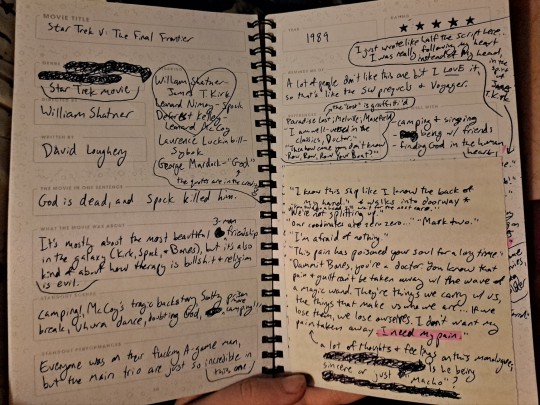 MOVIE TITLE
Star Trek V: The Final Frontier
Star Trek movie
DIRECTED BY
William Shatner
WRITTEN BY
David Loughery
William Shatner-
James T. Kirk
Leonard Nimoy - Spock
DeForest Kelley-
Leonard McCoy
Laurence Luckinbill-
Sybok
George Murdock-"God"
the quotes are in the
THE MOVIE IN ONE SENTENCE
God is dead, and Spock killed him.
WHAT THE MOVIE WAS ABOUT
3-man
It's mostly about the most beautiful friendship
in the galaxy (Kirk, Spock, + Bones), but it's also
kind of about how therapy is bullshit + religion
is evil.
STANDOUT SCENES
Camping!, McCoy's tragic backstory,
break, Uhura dance, busting God,
more camping!
STANDOUT PERFORMANCES
Everyone was on their fucking A-game, man,
but the main trio are just so incredible in
this one
YEAR
1989
★ ★ ★ ★ ★
I just wrote like half the script here.
I was really following my heart
instead of my hand,
in the
spirit of
T.
Kirk
A lot of people don't like this one but I LOVE it,
so that's like the SW prequels + Voyager.
the "lost" is graffiti'd
Paradise Lost, Melville, Masefield
"I am well-versed in the
classics, Doctor."
"Then how come you don't know
Row, Row, Row Your Boat?"
- camping + singing
- being w/ friends
- finding God in the human
heart
"I know this ship like I know the back of
my hand." * walks into doorway *
"We're not splitting up."
"Our coordinates are zero zero..." "Mark two."
"I'm afraid of nothing."
"This pain has poisoned your soul for a long time."
"Damn it Bones, you're a doctor. You know that
pain + guilt can't be taken away w/ the wave of
a magic wand. They're things we carry w/ us,
the things that make us who we are... If we
lose them, we lose ourselves. I don't want my
pain taken away. I need my pain."
a lot of thoughts + feelings on this monologue,
is he being
sincere or just "macho"?